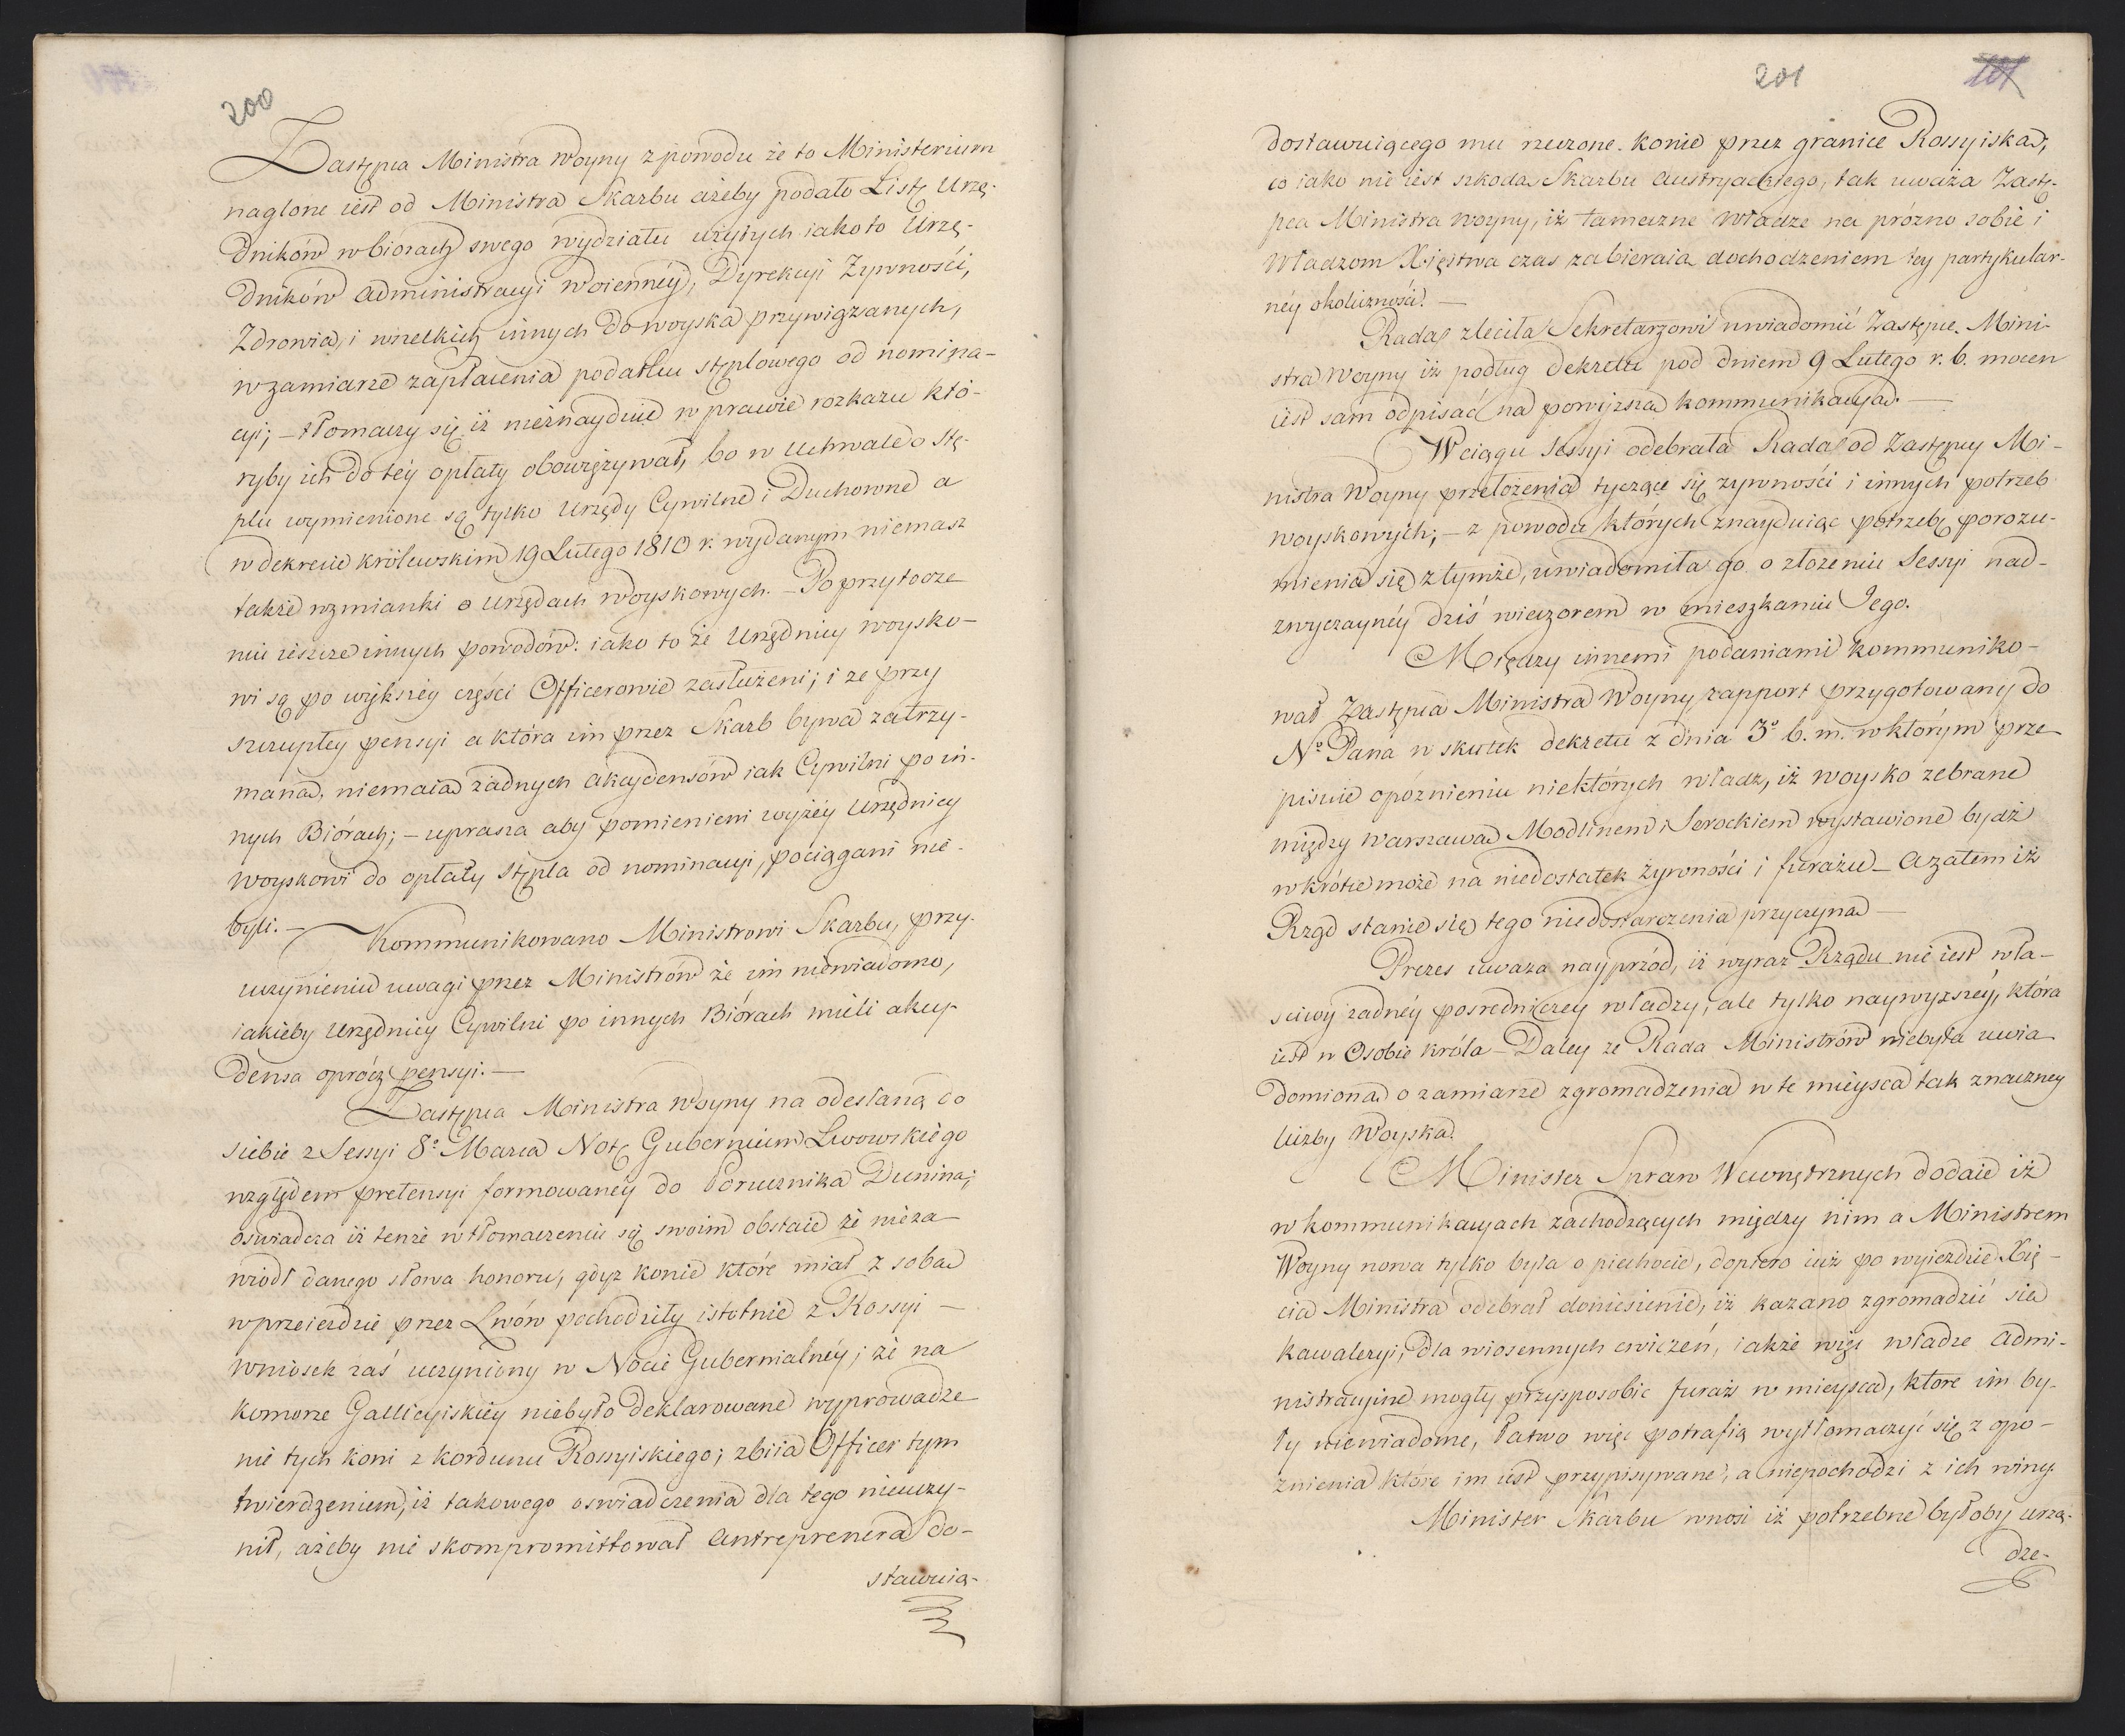 200
Zastępca Ministra Woyny z powodu że to Ministerium
naglone iest od Ministra Skarbu ażeby podało Listę Urzę-
dników w biórach swego wydziału użytych iako to Urzę-
dników Administracyi woienney, Dyrekcyi Żywności,
Zdrowia, i wszelkich innych do woyska przywiązanych,
w zamiarze zapłacenia podatku stęplowego od nomina-
cyi; – tłomaczy się iż nieznayduie w prawie rozkazu któ-
ryby ich do téy opłaty obowięzywał, bo w Uchwale o stę-
plu wymienione są tylko Urzędy Cywilne i Duchowne a
w dekrecie królewskim 19 Lutego 1810 r. wydanym niemasz
także wzmianki o Urzędach woyskowych. – Po przytocze
niu ieszcze innych powodów: iako to że Urzędnicy woysko-
wi są po większéy części Officerowie zasłużeni; i ze przy
szczupłey pensyi a która im przez Skarb bywa zatrzy-
maną, niemaią żadnych akcydensów iak Cywilni po in-
nych Biórach; – uprasza aby pomienieni wyżéy Urzędnicy
woyskowi do opłaty stępla od nominacyi, pociągani nie-
byli. –
Kommunikowano Ministrowi Skarbu, przy-
uczynieniu uwagi przez Ministrów że im niewiadomo,
iakieby Urzędnicy Cywilni po innych Biórach mieli akcy-
densa oprócz pensyi. –
Zastępca Ministra Woyny na odesłaną do
siebie z Sessyi 8º Marca Notę Gubernium Lwowskiego
względem pretensyi formowanéy do Porucznika Dunina;
oswiadcza iż tenże w tłomaczeniu się swoim obstaie że nieza-
wiodł danego słowa honoru, gdyz konie które miał z sobą
w przeieździe przez Lwów pochodziły istotnie z Rossyi –
wniosek zaś uczyniony w Nocie Gubernialnéy; że na
komorze Gallicyiskiéy niebyło deklarowane wyprowadze
nie tych koni z kordunu Rossyiskiego; zbiia Officer tym
twierdzeniem, iż takowego oswiadczenia dla tego nieuczy-
nił, ażeby nie skompromittował Antreprenera do-
stawuią-
201
101
dostawuiącego mu rzeczone konie przez granice Rossyiską;
co iako nie iest szkodą Skarbu Austryackiego, tak uważa Zastę-
pca Ministra Woyny, iż tameczne Władze na prózno sobie i
Władzom Xięstwa czas zabieraią dochodzeniem téy partykular-
néy okoliczności. –
Rada zleciła Sekretarzowi uwiadomić Zastępcę Mini-
stra Woyny iż podług dekretu pod dniem 9 Lutego r. b. mocen
iest sam odpisać na powyższą kommunikacyą. –
W ciągu Sessyi odebrała Rada od Zastępcy Mi-
nistra Woyny przełożenia tyczące się zywności i innych potrzeb
woyskowych; – z powodu których znayduiąc potrzebę porozu-
mienia się z tymże, uwiadomiła go o złozeniu Sessyi nad-
zwyczaynéy dziś wieczorem w mieszkaniu Jego.
Między innemi podaniami kommuniko-
wał Zastępca Ministra Woyny rapport przygotowany do
Nº Pana w skutek dekretu z dnia 3º b. m. w którym prze
pisuie opóznieniu niektórych władz, iż woysko zebrane
między Warszawą Modlinem i Serockiem wystawione bydź
wkrótce może na niedostatek żywności i furażu – A zatem iż
Rząd stanie się tego niedostarczenia przyczyną –
Prezes uwaza nayprzód, iż wyraz Rządu nie iest wła-
sciwy zadnéy posredniczey władzy, ale tylko naywyzszéy, która
iest w Osobie króla – Daley ze Rada Ministrów niebyła uwia
domioną o zamiarze zgromadzenia w te mieysca tak znaczney
liczby Woyska.
Minister Spraw Wewnętrznych dodaie iż
w kommunikacyach zachodzących między nim a Ministrem
Woyny nowa tylko była o piechocie, dopiero iuż po wyieździe Xię-
cia Ministra odebrał doniesienie, iż kazano zgromadzić się
kawaleryi, dla wiosennych cwiczeń, iakże więc władze Admi-
nistracyine mogły przysposobic furaż w mieysca, które im by-
ły niewiadome, łatwo więc potrafią wytłomaczyć się z opo-
znienia które im iest przypisywane, a niepochodzi z ich winy.
Minister Skarbu wnosi iż potrzebne byłoby urzą-
dze-